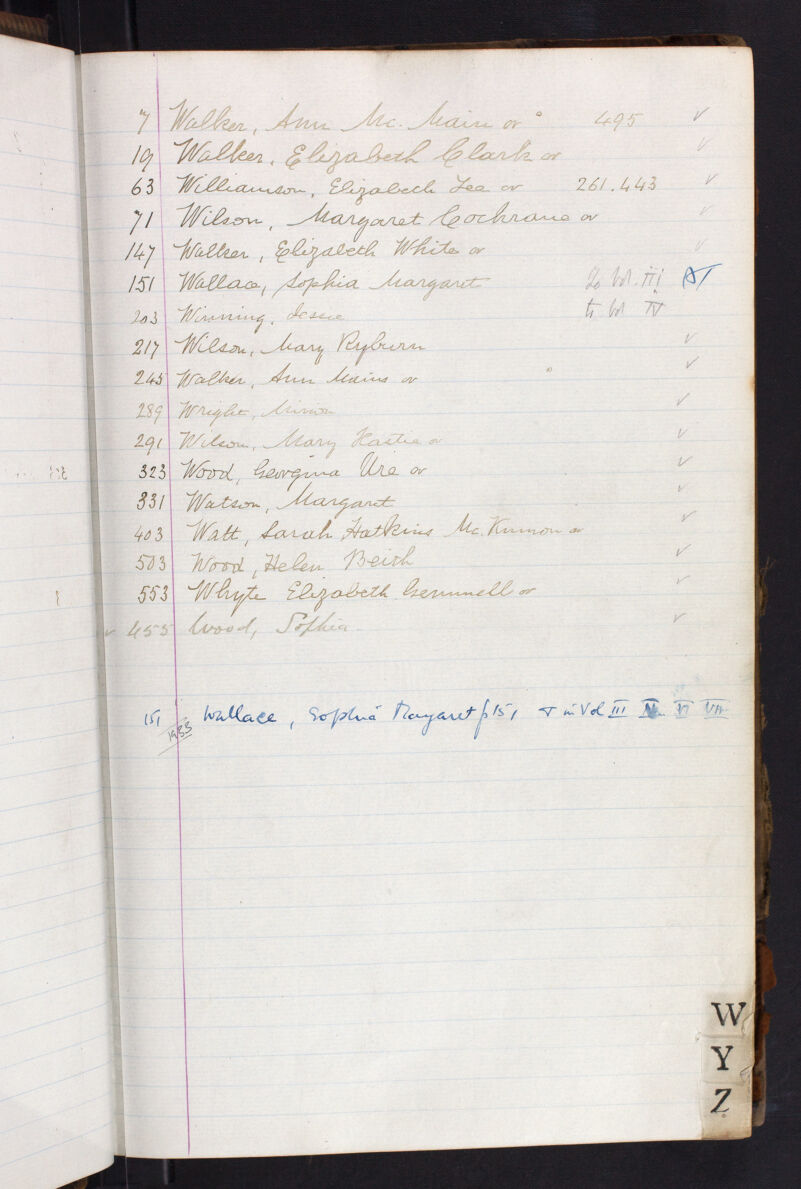 7 Walker, Ann Mc. Main or ° 495 ✓
19 Walker, Elizabeth Clark or ✓
63 Williamson, Elizabeth Lee or 261.443 ✓
71 Wilson, Margaret Cochrane or ✓
147 Walker, Elizabeth White or ✓
151 Wallace, Sophia Margaret To Vol. III
203 Winning, Jessie to Vol IV
217 Wilson, Mary Ryburn ✓
245 Walker, Ann Mains or ✓
289 Wright, ✓
291 Wilson, Mary Hastie or ✓
323 Wood, Georgina Ure or ✓
331 Watson, Margaret ✓
403 Watt, Sarah Hatkins Mc. Kinnon or ✓
503 Wood, Helen Beith ✓
553 Whyte Elizabeth Gemmell or ✓
✓ 455 Wood, Sophia ✓
151 Wallace, Sophia Margaret p 151 & in Vol III VI VII
1933
W
Y
Z